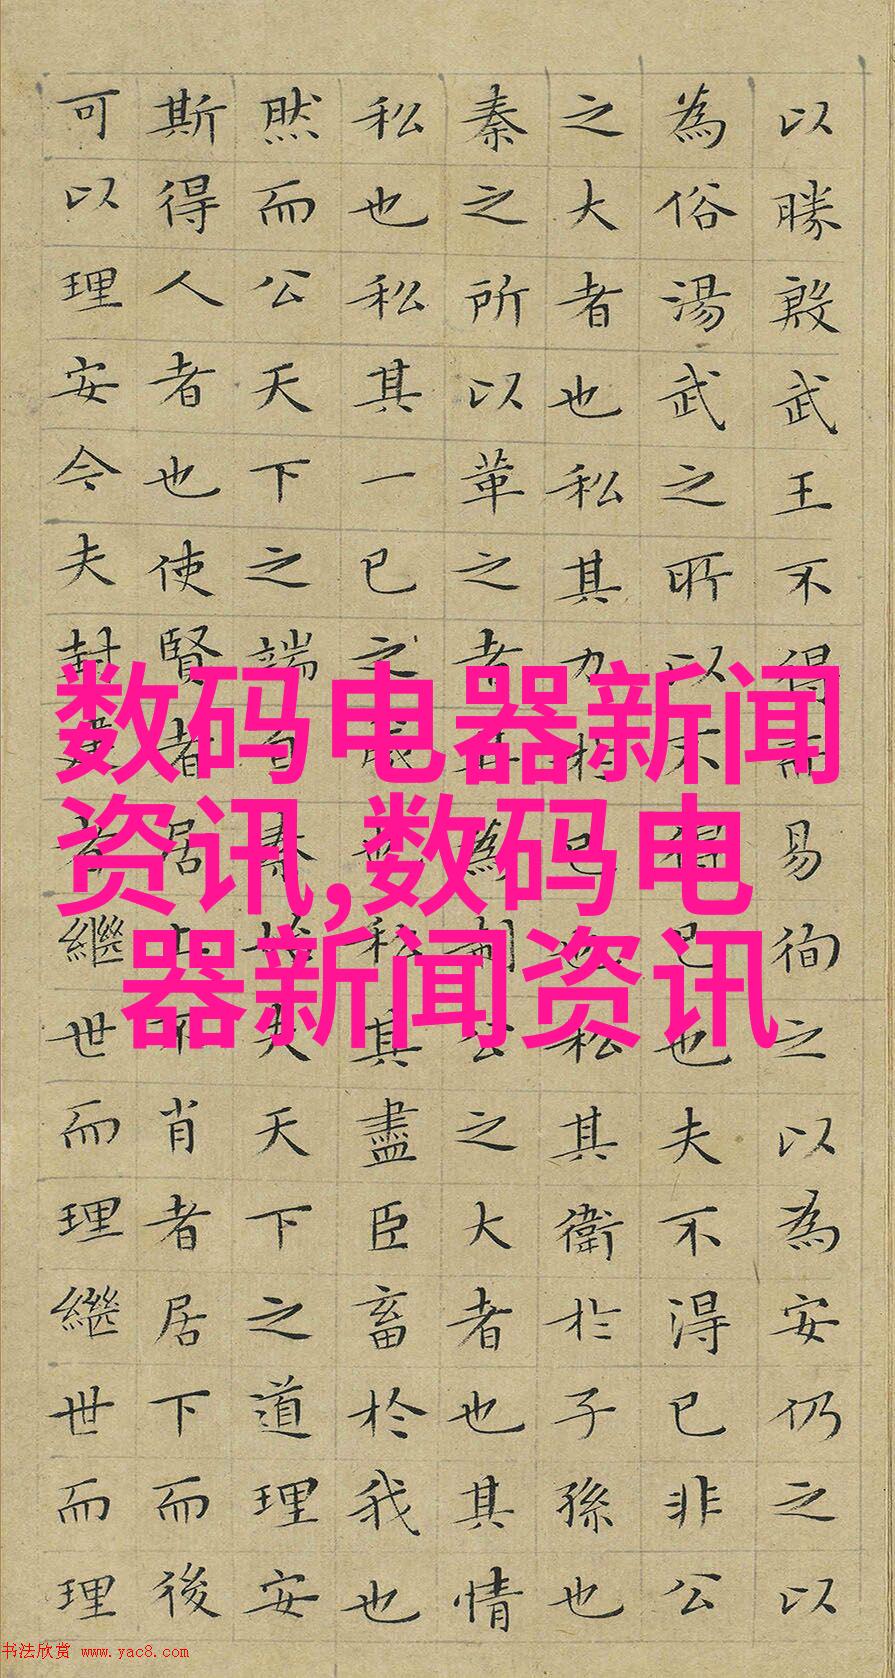 以勝殷武王不得而易徇之以為安仍之以
為俗湯武之所以不得已也夫不得已非公
之大者也私其力於已也私其衛於子孫也
秦之所以革之者其為制公之大者也其情
私也私其一已之威也私其盡臣畜於我也
然而公天下之端自秦始夫天下之道理安
斯得人者也使賢者居上不肖者居下而後
可以理安今夫封建者繼世而理繼世而理
数码电器新闻
资讯,数码电
器新闻资讯
书法欣赏 www.yac8.com